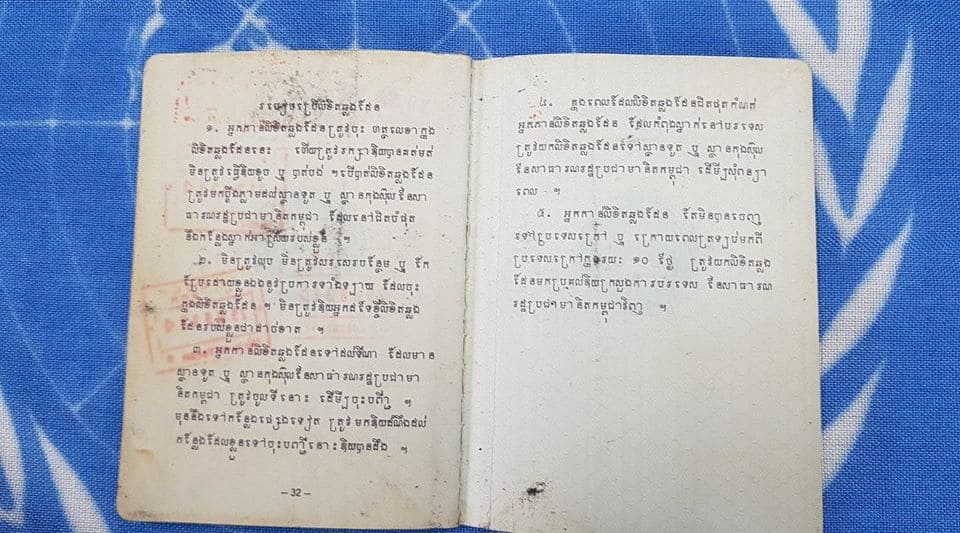 របៀបប្រើលិខិតឆ្លងដែន
១. អ្នកកាន់លិខិតឆ្លងដែនត្រូវចុះ ហត្ថលេខាក្នុង
លិខិតឆ្លងដែននេះ ហើយត្រូវរក្សាឱ្យបានគត់មត់
មិនត្រូវធ្វើឱ្យខូច ឬ បាត់បង់ ។ បើបាត់លិខិតឆ្លងដែន
ត្រូវមកប្ដឹងភ្លាមដល់ស្ថានទូត ឬ ស្ថានកុងស៊ុល នៃសា
ធារណរដ្ឋប្រជាមានិតកម្ពុជា ដែលនៅជិតបំផុត
នឹងកន្លែងស្នាក់អាស្រ័យរបស់ខ្លួន ។
២. មិនត្រូវលុប មិនត្រូវសរសេរបន្ថែម ឬ កែ
ប្រែដោយខ្លួនឯងនូវប្រការទាំងឡាយ ដែលចុះ
ក្នុងលិខិតឆ្លងដែន ។ មិនត្រូវឱ្យអ្នកដទៃខ្ចីលិខិតឆ្លង
ដែនរបស់ខ្លួនជាដាច់ខាត ។
៣. អ្នកកាន់លិខិតឆ្លងដែនទៅដល់ទីណា ដែលមាន
ស្ថានទូត ឬ ស្ថានកុងស៊ុលនៃសាធារណរដ្ឋប្រជាមា
និតកម្ពុជា ត្រូវចូលទីនោះ ដើម្បីចុះបញ្ជី ។
មុននឹងទៅកន្លែងផ្សេងទៀត ត្រូវមកឱ្យដំណឹងដល់
កន្លែងដែលខ្លួនទៅចុះបញ្ជីនោះឱ្យបានដឹង ។
– 32 –
៤. ក្នុងពេលដែលលិខិតឆ្លងដែនជិតផុតកំណត់
អ្នកកាន់លិខិតឆ្លងដែន ដែលកំពុងស្នាក់នៅបរទេស
ត្រូវយកលិខិតឆ្លងដែនទៅស្ថានទូត ឬ ស្ថានកុងស៊ុល
នៃសាធារណរដ្ឋប្រជាមានិតកម្ពុជា ដើម្បីសុំពន្យា
ពេល ។
៥. អ្នកកាន់លិខិតឆ្លងដែន តែមិនបានចេញ
ទៅប្រទេសក្រៅ ឬ ក្រោយពេលត្រឡប់មកពី
ប្រទេសក្រៅក្នុងរយៈ ១០ ថ្ងៃ ត្រូវយកលិខិតឆ្លង
ដែនមកប្រគល់ឱ្យក្រសួងការបរទេស នៃសាធារណ
រដ្ឋប្រជាមានិតកម្ពុជាវិញ ។